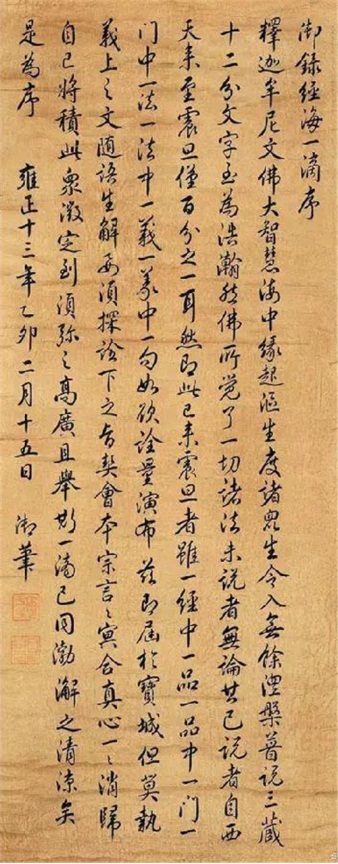 御錄經海一滴序
釋迦牟尼文佛大智慧海中緣起漚生度諸眾生令入無餘涅槃普說三藏
十二分文字至為浩瀚然佛所覺了一切諸法未說者無論其已說者自西
天來至震旦僅百分之一耳然即此已來震旦者雖一經中一品一品中一門一
門中一法一法中一義一義中一句如欲詮量演布茲即屆於寶城但莫執
義上之文隨語生解要須探詮下之旨契會本宗言〻冥合真心一〻消歸
自己將積此眾微定到須弥之高廣且舉斯一滴已同渤澥之清涼矣
是為序 雍正十三年乙卯二月十五日 御筆